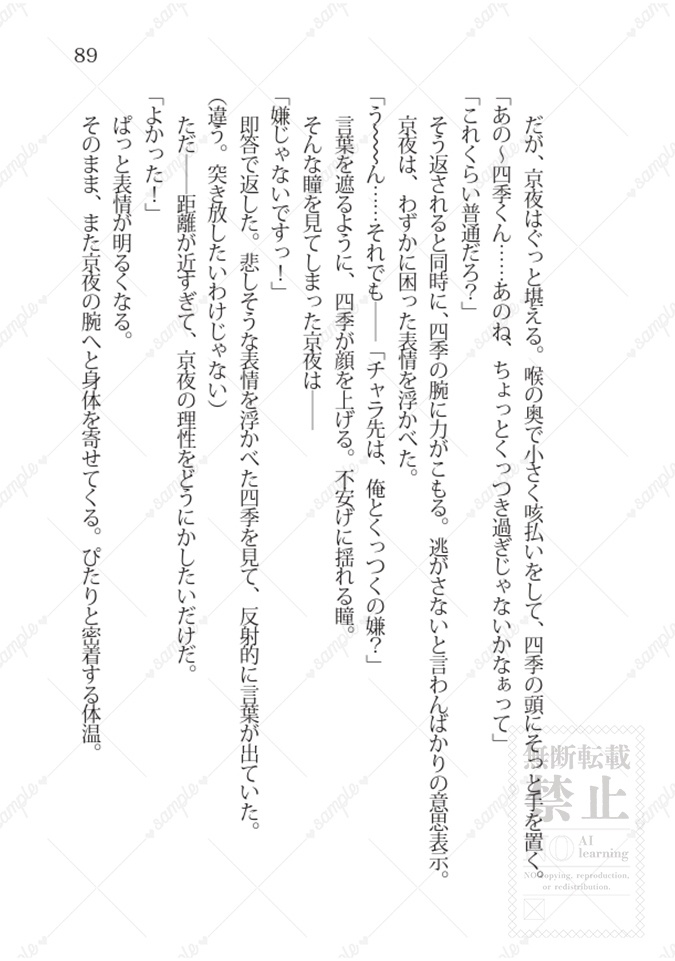 89
だが、京夜はぐっと堪える。喉の奥で小さく咳払いをして、四季の頭にそっと手を置く。
「あの～四季くん……あのね、ちょっとくっつき過ぎじゃないかなぁって」
「これくらい普通だろ？」
そう返されると同時に、四季の腕に力がこもる。逃がさないと言わんばかりの意思表示。
京夜は、わずかに困った表情を浮かべた。
「う～～～ん……それでも――「チャラ先は、俺とくっつくの嫌？」
言葉を遮るように、四季が顔を上げる。不安げに揺れる瞳。
そんな瞳を見てしまった京夜は――
「嫌じゃないですっ！」
即答で返した。悲しそうな表情を浮かべた四季を見て、反射的に言葉が出ていた。
（違う。突き放したいわけじゃない）
ただ――距離が近すぎて、京夜の理性をどうにかしたいだけだ。
「よかった！」
ぱっと表情が明るくなる。
そのまま、また京夜の腕へと身体を寄せてくる。ぴたりと密着する体温。
無断転載
禁止
NO AI
learning
NO copying, reproduction,
or redistribution.
sample